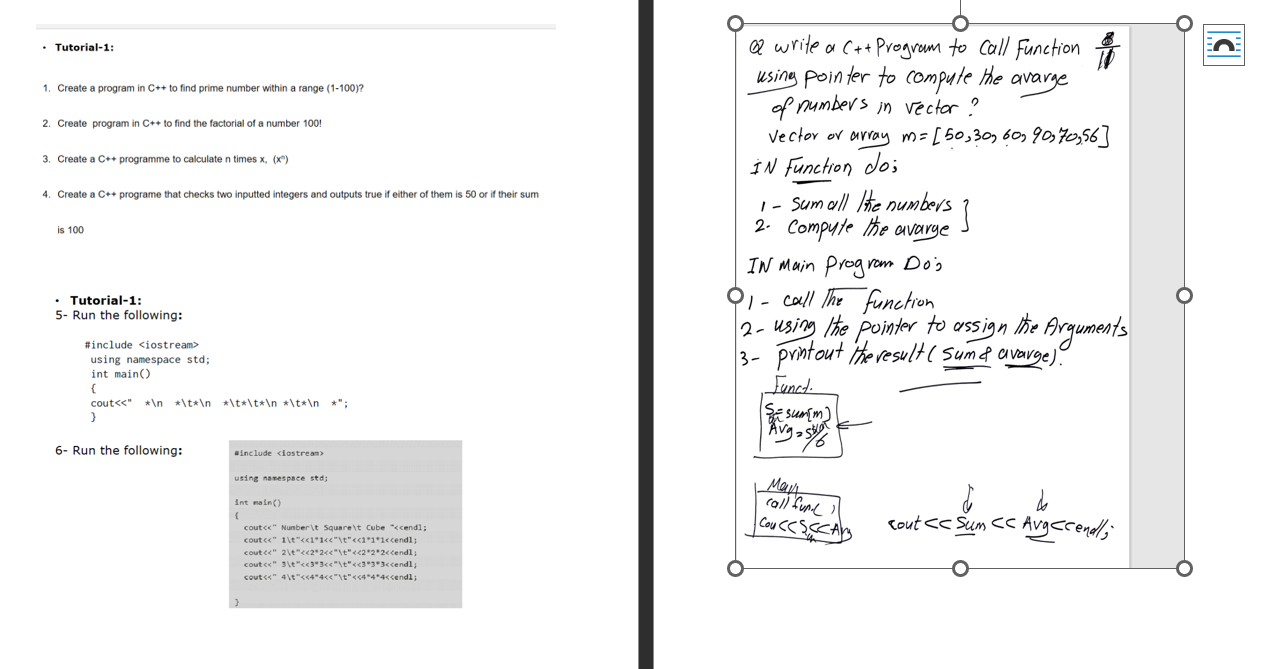 • Tutorial-1:
1. Create a program in C++ to find prime number within a range (1-100)?
2. Create program in C++ to find the factorial of a number 100!
3. Create a C++ programme to calculate n times x, (xⁿ)
4. Create a C++ programe that checks two inputted integers and outputs true if either of them is 50 or if their sum
is 100
• Tutorial-1:
5- Run the following:
#include <iostream>
using namespace std;
int main()
{
cout<<"  *\n  *\t*\n  *\t*\t*\n *\t*\n  *";
}
6- Run the following:
#include <iostream>
using namespace std;
int main()
{
cout<<" Number\t Square\t Cube "<<endl;
cout<<" 1\t"<<1*1<<"\t"<<1*1*1<<endl;
cout<<" 2\t"<<2*2<<"\t"<<2*2*2<<endl;
cout<<" 3\t"<<3*3<<"\t"<<3*3*3<<endl;
cout<<" 4\t"<<4*4<<"\t"<<4*4*4<<endl;
}
Q write a C++ Program to Call Function
using pointer to compute the avarge
of numbers in vector ?
Vector or array m=[50,30,60,90,70,56]
IN Function do;
1- Sum all the numbers
2- Compute the avarge
IN Main Program Do;
1- call The function
2- using the pointer to assign the Arguments
3- printout the result (sum & avarge).
Funct.
S= sum[m]
Avg = sum/6
Main
call func
Cou<<S<<Avg
cout<<Sum<< Avg<<endl;